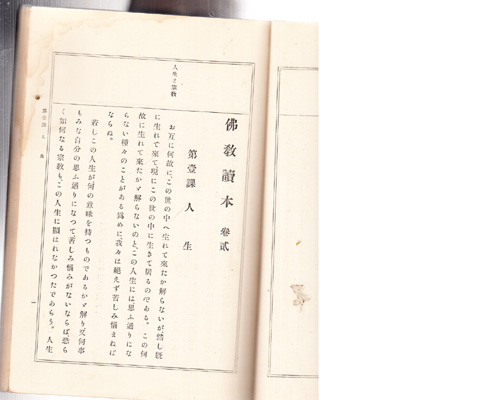 佛教讀本 卷貳
第壹課 人生
人生と宗教
お互に何故に、この世の中へ生れて來たか解らないが、然し既
に生れて來て、現にこの世の中に生きて居るのである。この何
故に生れて來たかゞ解らないのと、この人生には思ふ通りにな
らない種々のことがある爲めに、我々は絕えず苦しみ惱まねば
ならぬ。
若しこの人生が何の意味を持つものであるかゞ解り、又何事
もみな自分の思ふ通りになつて、苦しみ惱みがないならば、恐ら
く如何なる宗教も、この人生に顯はれなかつたであらう。人生
第壹課 人生
一